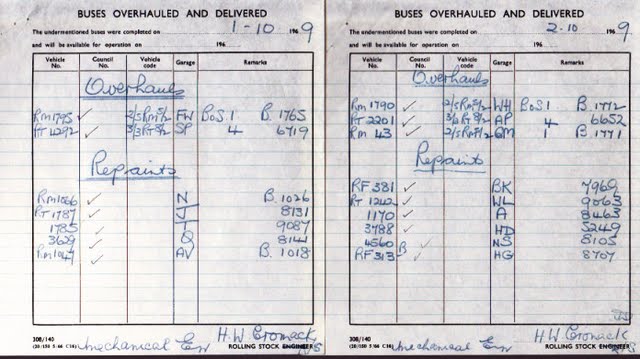 BUSES OVERHAULED AND DELIVERED
The undermentioned buses were completed on 1-10 1969
and will be available for operation on 196
Vehicle No. Council No. Vehicle code Garage Remarks
Overhauls
RM1795 ✓ 2/5RM5/2 FW BoS1 B.1765
RT4292 ✓ 3/3RT8/2 SP 4 6719
Repaints
RM1066 ✓ N B.1026
RT1787 ✓ J 8731
1785 ✓ T 9087
3629 ✓ Q 8144
RM1047 ✓ AV B.1018
H.W Cromack
308/140
Mechanical En
ROLLING STOCK ENGINEER
BUSES OVERHAULED AND DELIVERED
The undermentioned buses were completed on 2-10 1969
and will be available for operation on 196
Vehicle No. Council No. Vehicle code Garage Remarks
Overhauls
RM1790 ✓ 2/5RM5/2 WH BoS1 B.1772
RT2201 ✓ 3/2RT8/2 AP 4 6652
RM 43 ✓ 2/5RM5/2 GM 1 B.1771
Repaints
RF381 ✓ BK 7969
RT1242 ✓ WL 9063
1170 ✓ A 8463
3788 ✓ HD 5249
4560 B ✓ NS 8105
RF313 ✓ HG 8707
H.W Cromack
308/140
Mechanical En
ROLLING STOCK ENGINEER